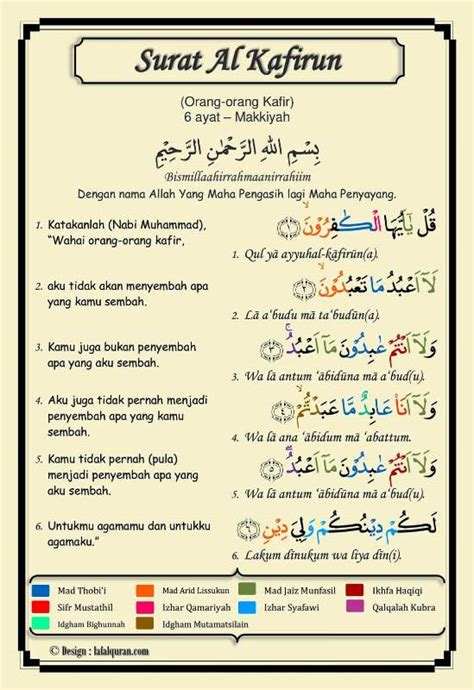 Surat Al Kafirun
(Orang-orang Kafir)
6 ayat – Makkiyah
بِسْمِ اللهِ الرَّحْمٰنِ الرَّحِيْمِ
Bismillaahirrahmaanirrahiim
Dengan nama Allah Yang Maha Pengasih lagi Maha Penyayang.
1. Katakanlah (Nabi Muhammad),
“Wahai orang-orang kafir,
قُلْ يٰٓاَيُّهَا الْكٰفِرُوْنَۙ ۝١
1. Qul yā ayyuhal-kāfirūn(a).
2. aku tidak akan menyembah apa
yang kamu sembah.
لَآ اَعْبُدُ مَا تَعْبُدُوْنَۙ ۝٢
2. Lā a‘budu mā ta‘budūn(a).
3. Kamu juga bukan penyembah
apa yang aku sembah.
وَلَآ اَنْتُمْ عٰبِدُوْنَ مَآ اَعْبُدُۚ ۝٣
3. Wa lā antum ‘ābidūna mā a‘bud(u).
4. Aku juga tidak pernah menjadi
penyembah apa yang kamu
sembah.
وَلَآ اَنَا۠ عَابِدٌ مَّا عَبَدْتُّمْۙ ۝٤
4. Wa lā ana ‘ābidum mā ‘abattum.
5. Kamu tidak pernah (pula)
menjadi penyembah apa yang
aku sembah.
وَلَآ اَنْتُمْ عٰبِدُوْنَ مَآ اَعْبُدُۗ ۝٥
5. Wa lā antum ‘ābidūna mā a‘bud(u).
6. Untukmu agamamu dan untukku
agamaku.”
لَكُمْ دِيْنُكُمْ وَلِيَ دِيْنِ ۝٦
6. Lakum dīnukum wa liya dīn(i).
Mad Thobi’i
Mad Arid Lissukun
Mad Jaiz Munfasil
Ikhfa Haqiqi
Sifr Mustathil
Izhar Qamariyah
Izhar Syafawi
Qalqalah Kubra
Idgham Bighunnah
Idgham Mutamatsilain
© Design : lalalquran.com